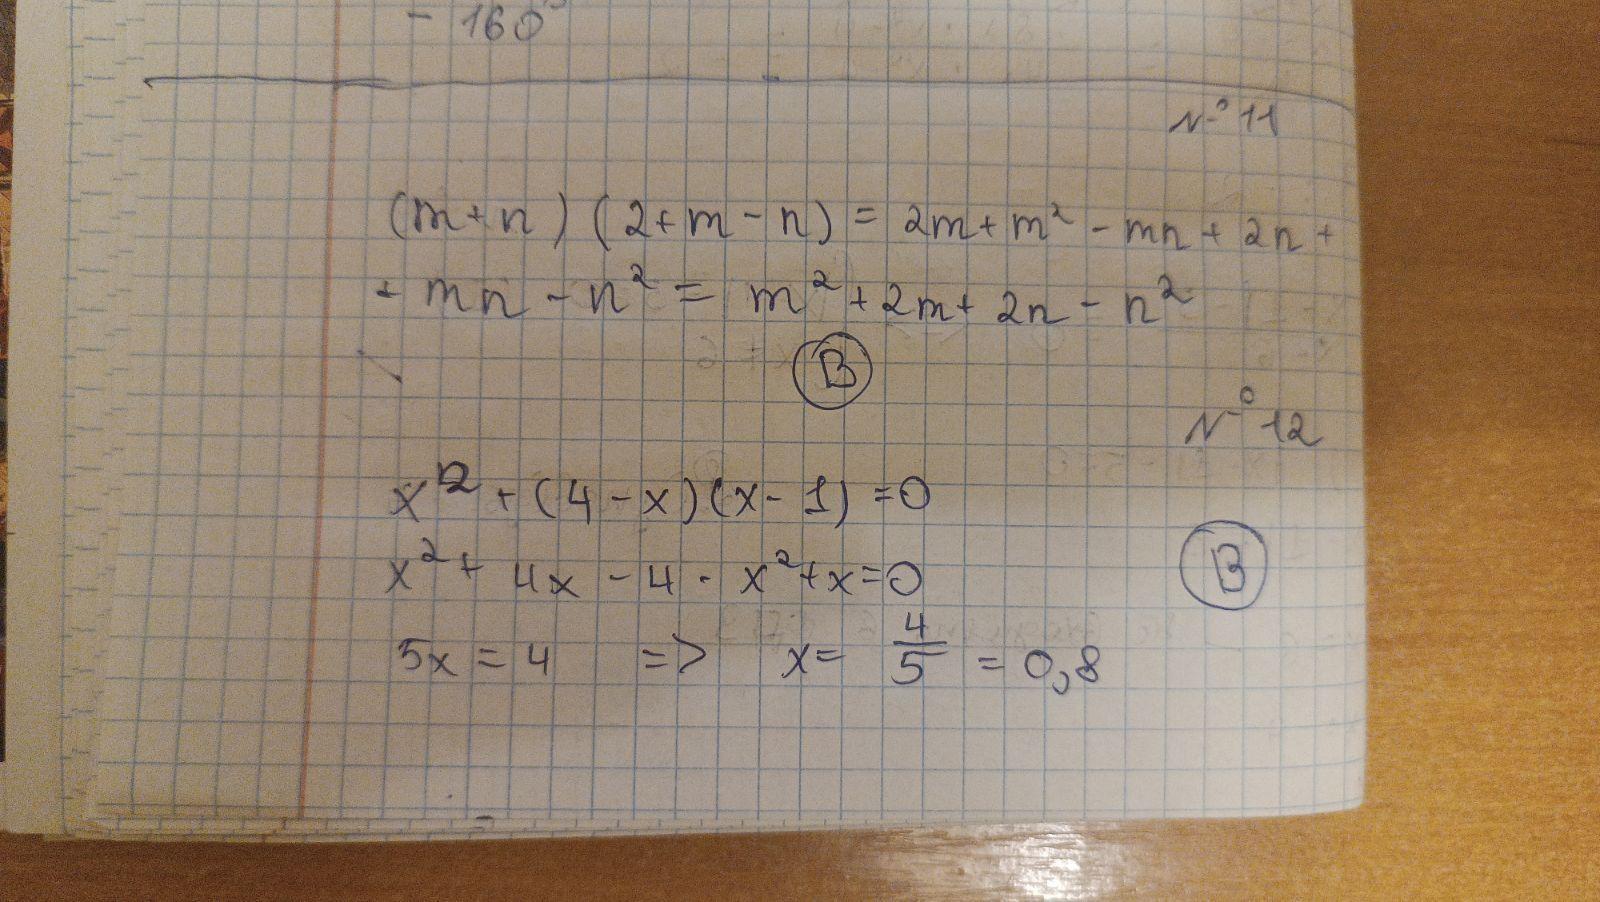 - 160°
№ 11
(m+n) (2+m-n) = 2m+m² - mn + 2n +
+ mn - n² = m² + 2m + 2n - n²
B
№ 12
x² + (4-x)(x-1) =0
x² + 4x - 4 - x²+x=0
B
5x = 4 => x= 4/5 = 0,8